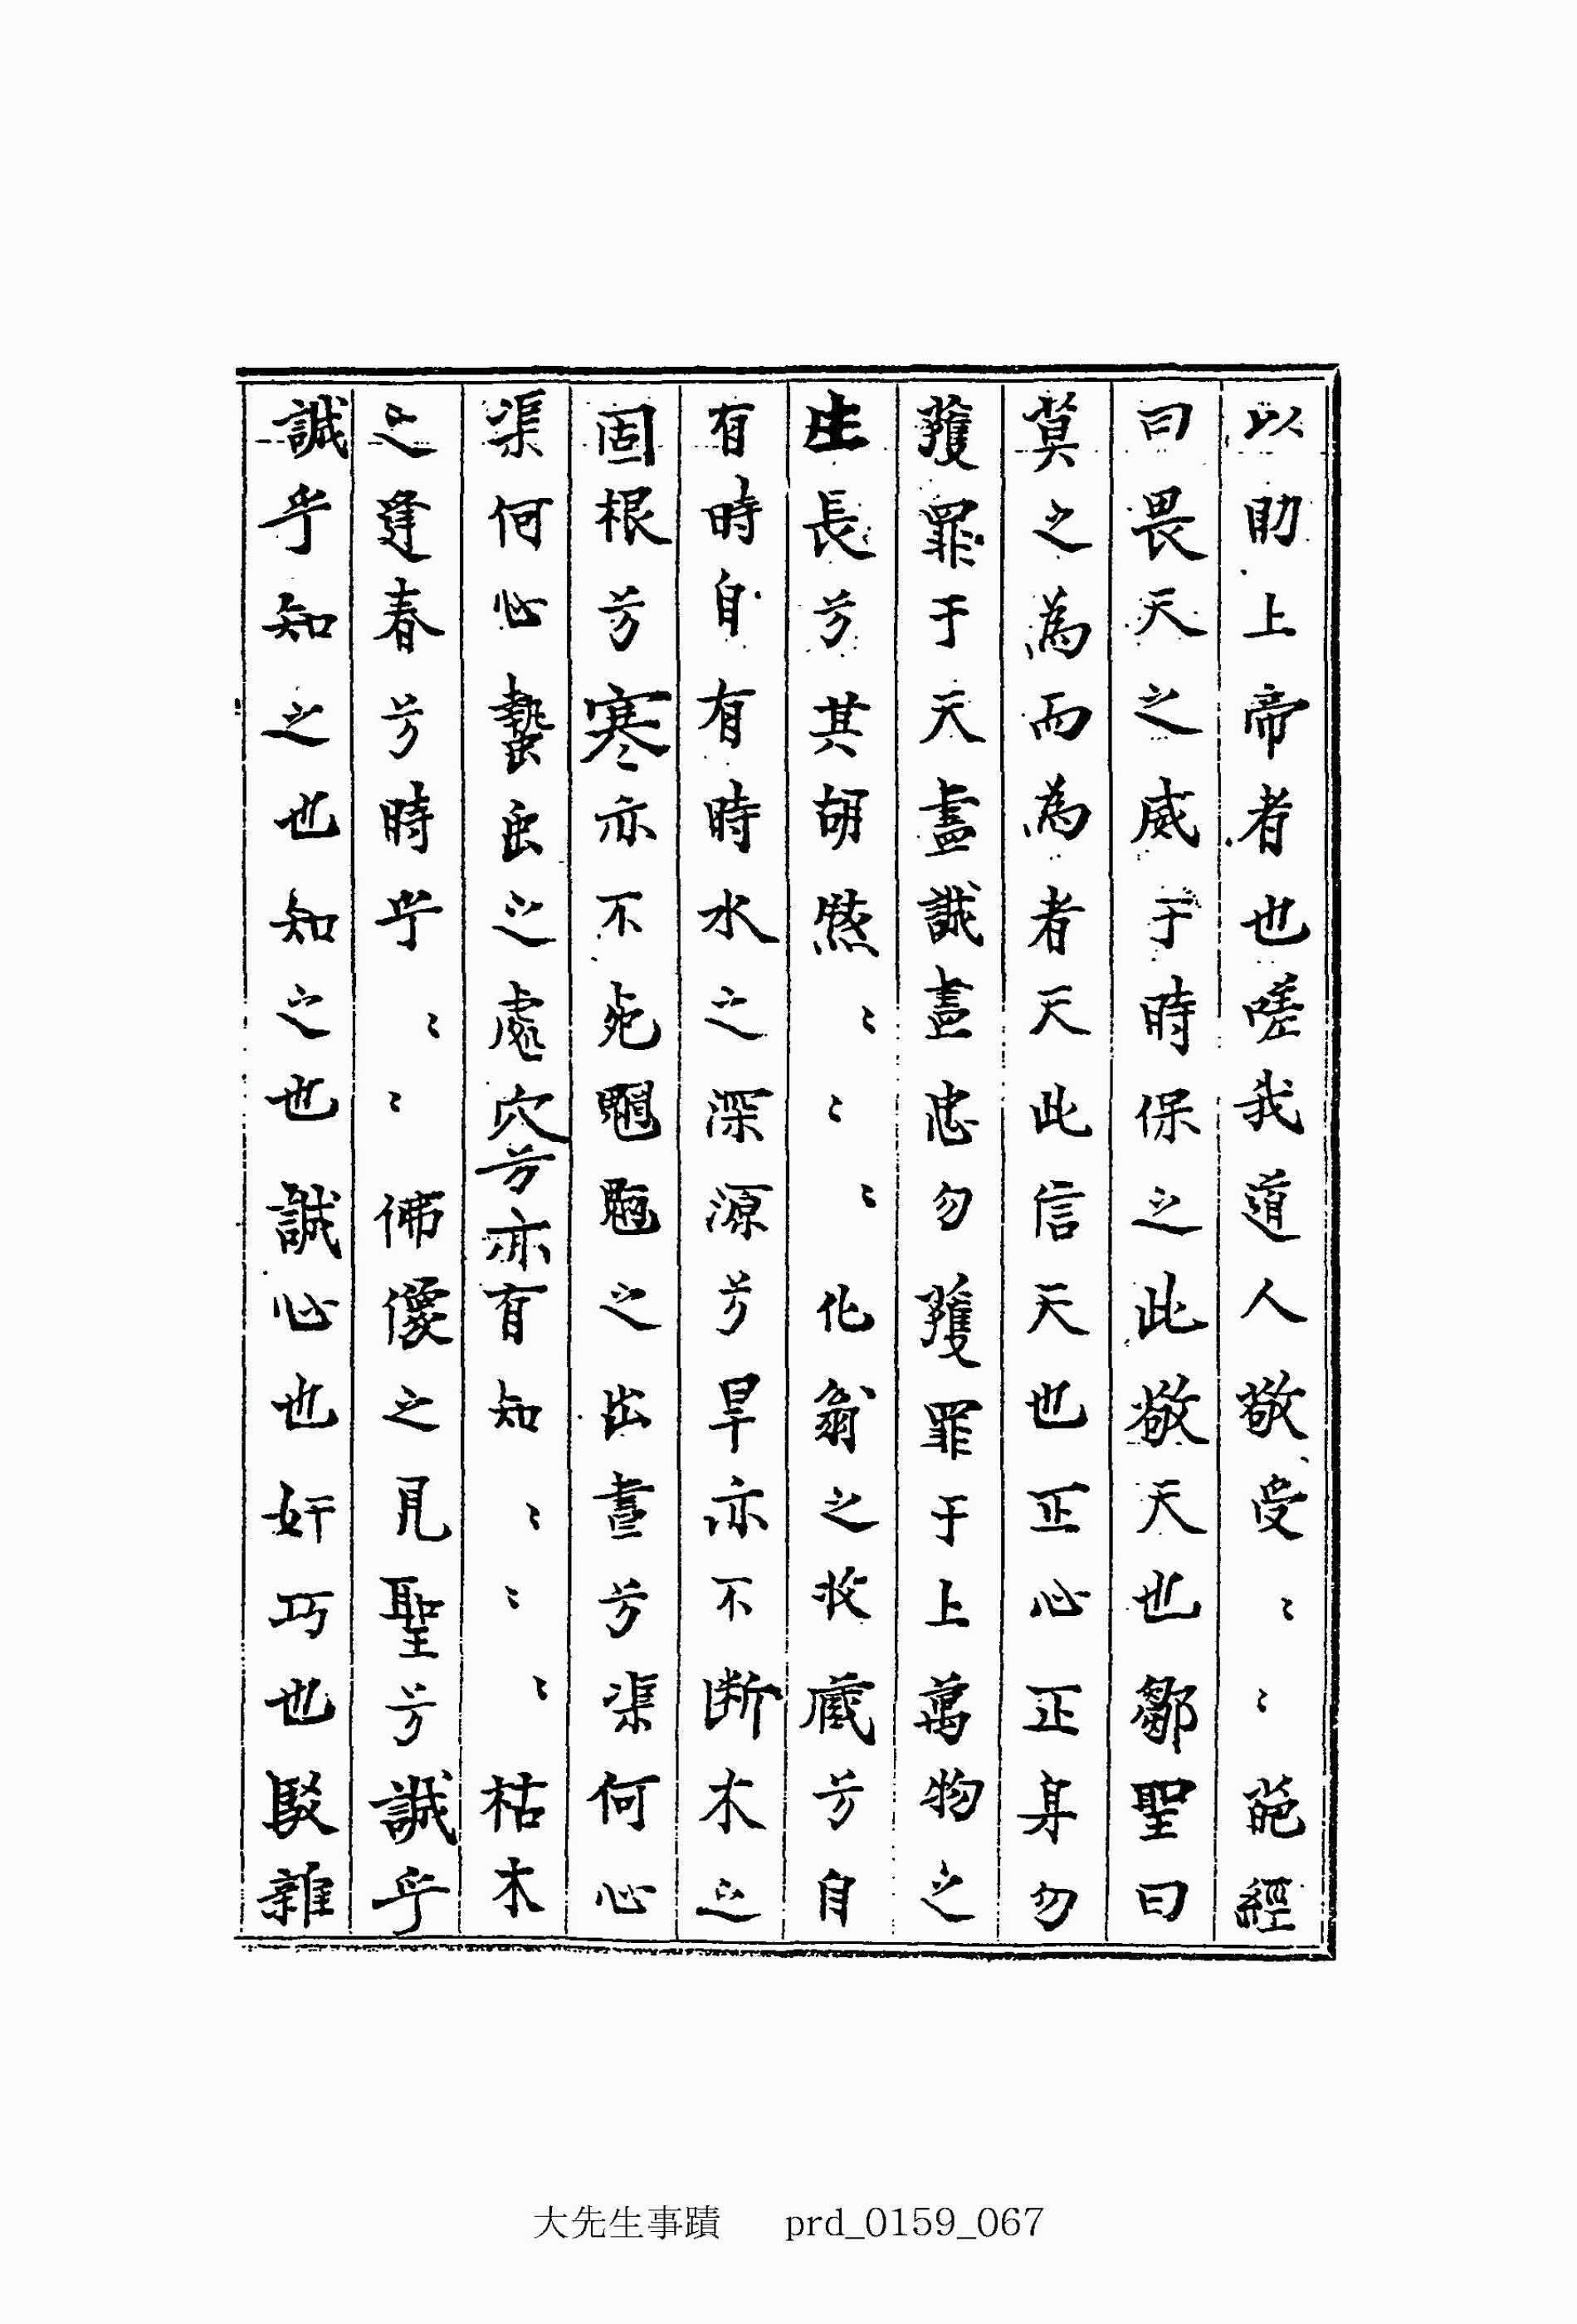 以助上帝者也嗟我道人敬受〻〻葩經
曰畏天之威于時保之此敬天也鄒聖曰
莫之為而為者天此信天也正心正身勿
獲罪于天盡誠盡忠勿獲罪于上萬物之
生長兮其胡然〻〻〻化翁之收藏兮自
有時自有時水之深源兮旱亦不断木之
固根兮寒亦不死魍魎之出晝兮渠何心
渠何心蟄虫之處穴兮亦有知〻〻〻枯木
之逢春兮時乎〻〻佛像之見聖兮誠乎
誠乎知之也知之也誠心也奸巧也駁雜
大先生事蹟 prd_0159_067